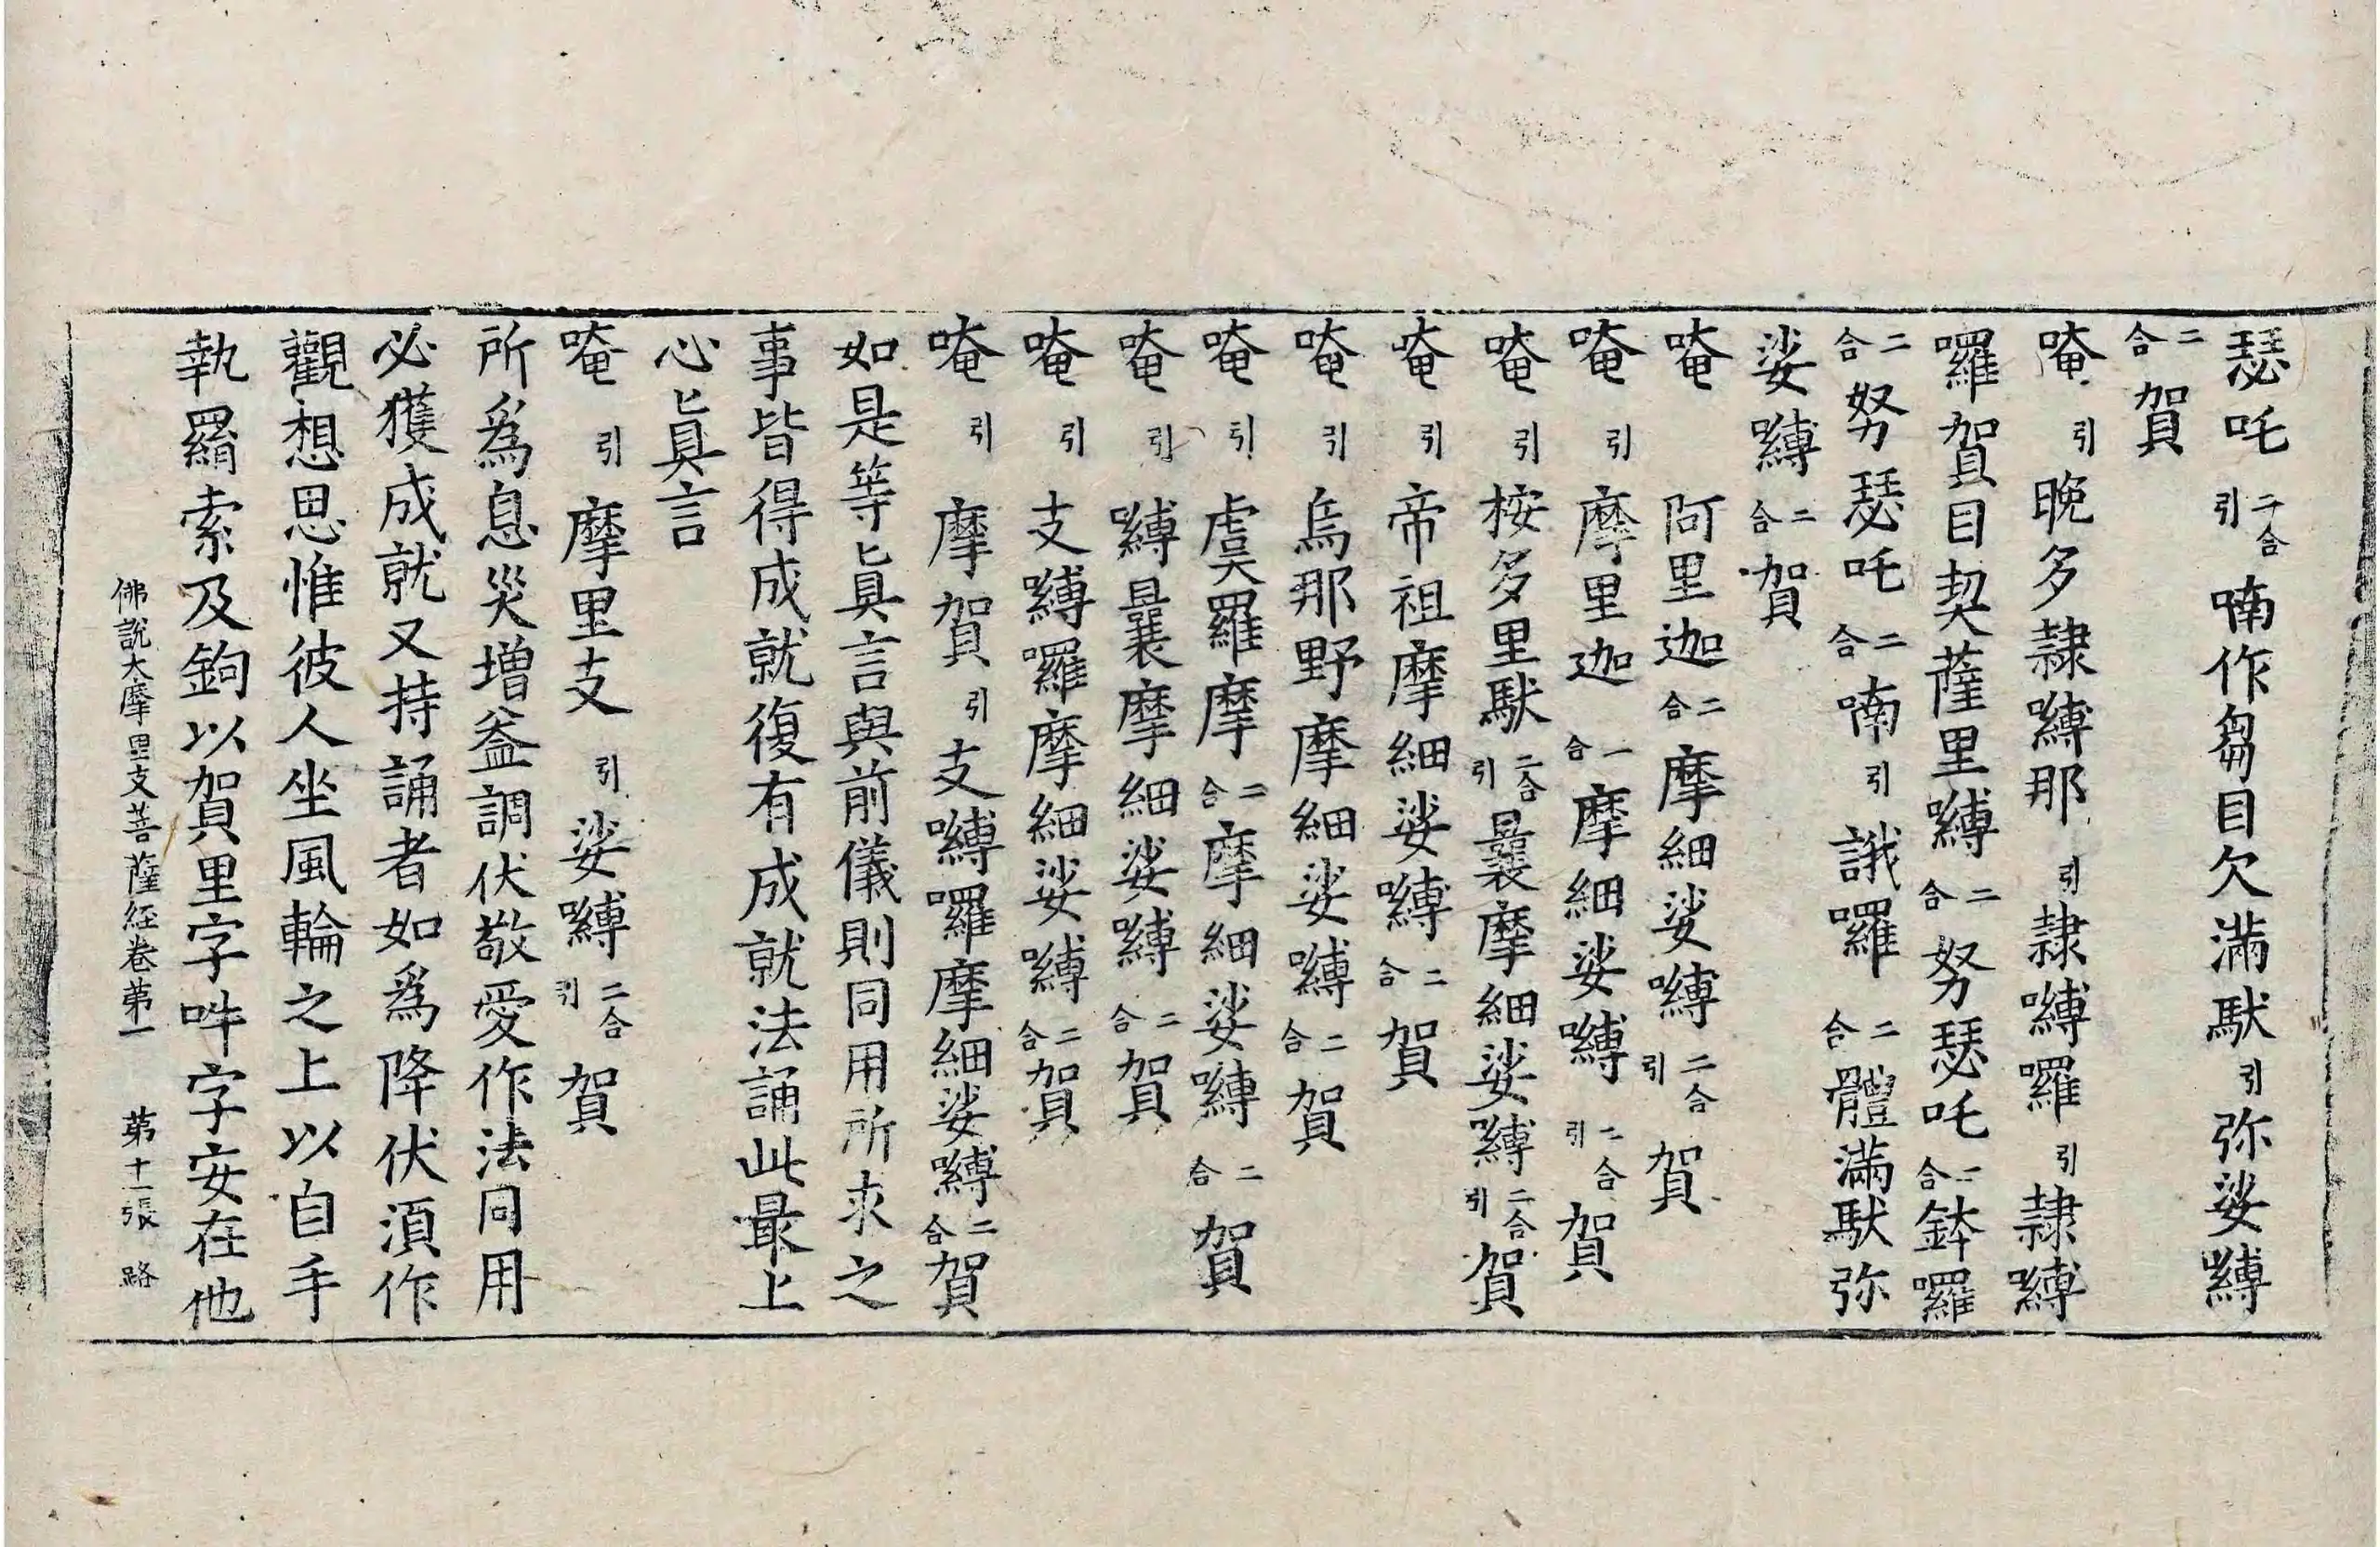 瑟吒二合引喃作芻目欠滿馱引弥娑嚩
二合賀
唵引晚多隷嚩那引隷嚩囉引隷嚩
囉賀目契薩里嚩二合努瑟吒二合鉢囉
二合努瑟吒二合喃引誐囉二合體滿馱弥
娑嚩二合賀
唵阿里迦二合摩細娑嚩二合引賀
唵引摩里迦一合摩細娑嚩二合引賀
唵引桉多里馱二合引曩摩細娑嚩二合引賀
唵引帝祖摩細娑嚩二合賀
唵引烏那野摩細娑嚩二合賀
唵引虞羅摩二合摩細娑嚩二合賀
唵引嚩曩摩細娑嚩二合賀
唵引支嚩囉摩細娑嚩二合賀
唵引摩賀引支嚩囉摩細娑嚩二合賀
如是等眞言與前儀則同用所求之
事皆得成就復有成就法誦此最上
心眞言
唵引摩里支引娑嚩二合引賀
所爲息災增益調伏敬愛作法同用
必獲成就又持誦者如爲降伏須作
觀想思惟彼人坐風輪之上以自手
執羂索及鉤以賀里字吽字安在他
佛說大摩里支菩薩經卷第一 第十一張 路